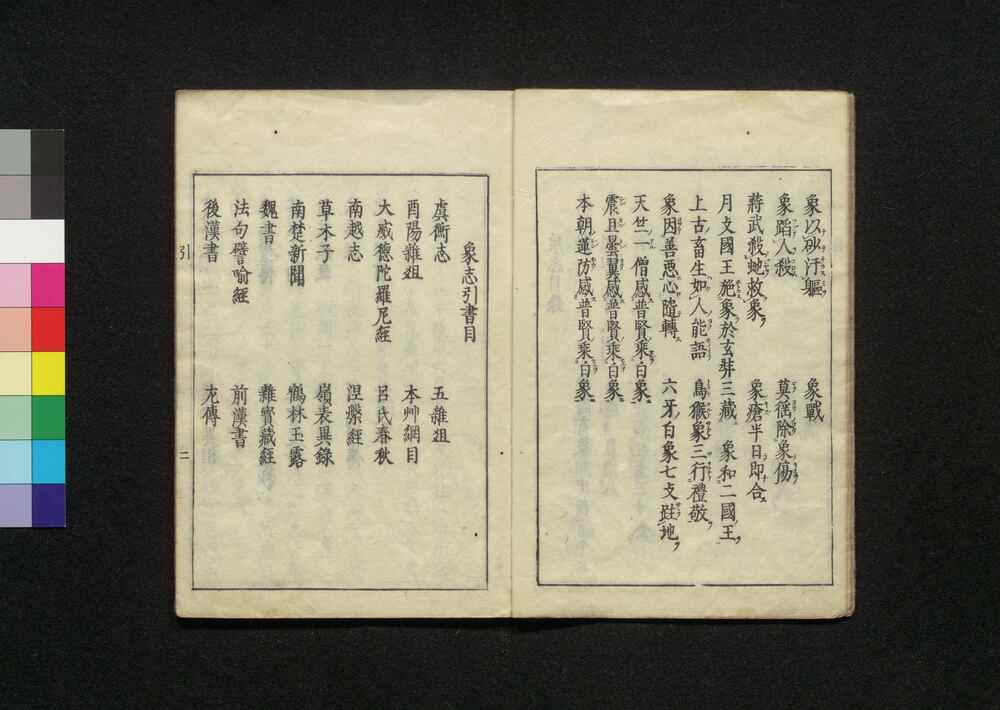 象以砂汙軀　象戰
象蹈人殺　莫徭除象傷
蔣武殺虵救象　象瘡半日即合
月支國王施象於玄弉三藏　象和二國王
上古畜生如人能語　鳥猴象三行禮敬
象因善惡心隨轉　六牙白象七支跓地
天竺一僧感普賢乗白象
震旦曇翼感普賢乗白象
本朝蓮防感普賢乗白象
象志引書目
虞衡志　五雜俎
酉陽雜俎　本艸綱目
大威德陀羅尼經　呂氏春秋
南越志　涅槃經
草木子　嶺表異錄
南楚新聞　鶴林玉露
魏書　雜寶藏經
法句譬喻經　前漢書
後漢書　左傳
引　二